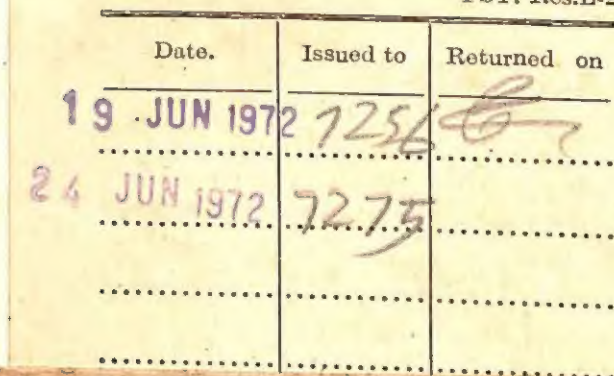 Date. Issued to Returned on
19 JUN 1972 7256
24 JUN 1972 7275